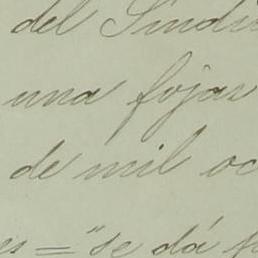 del Sindi
una fojas
de mil oc
es = "se dá f